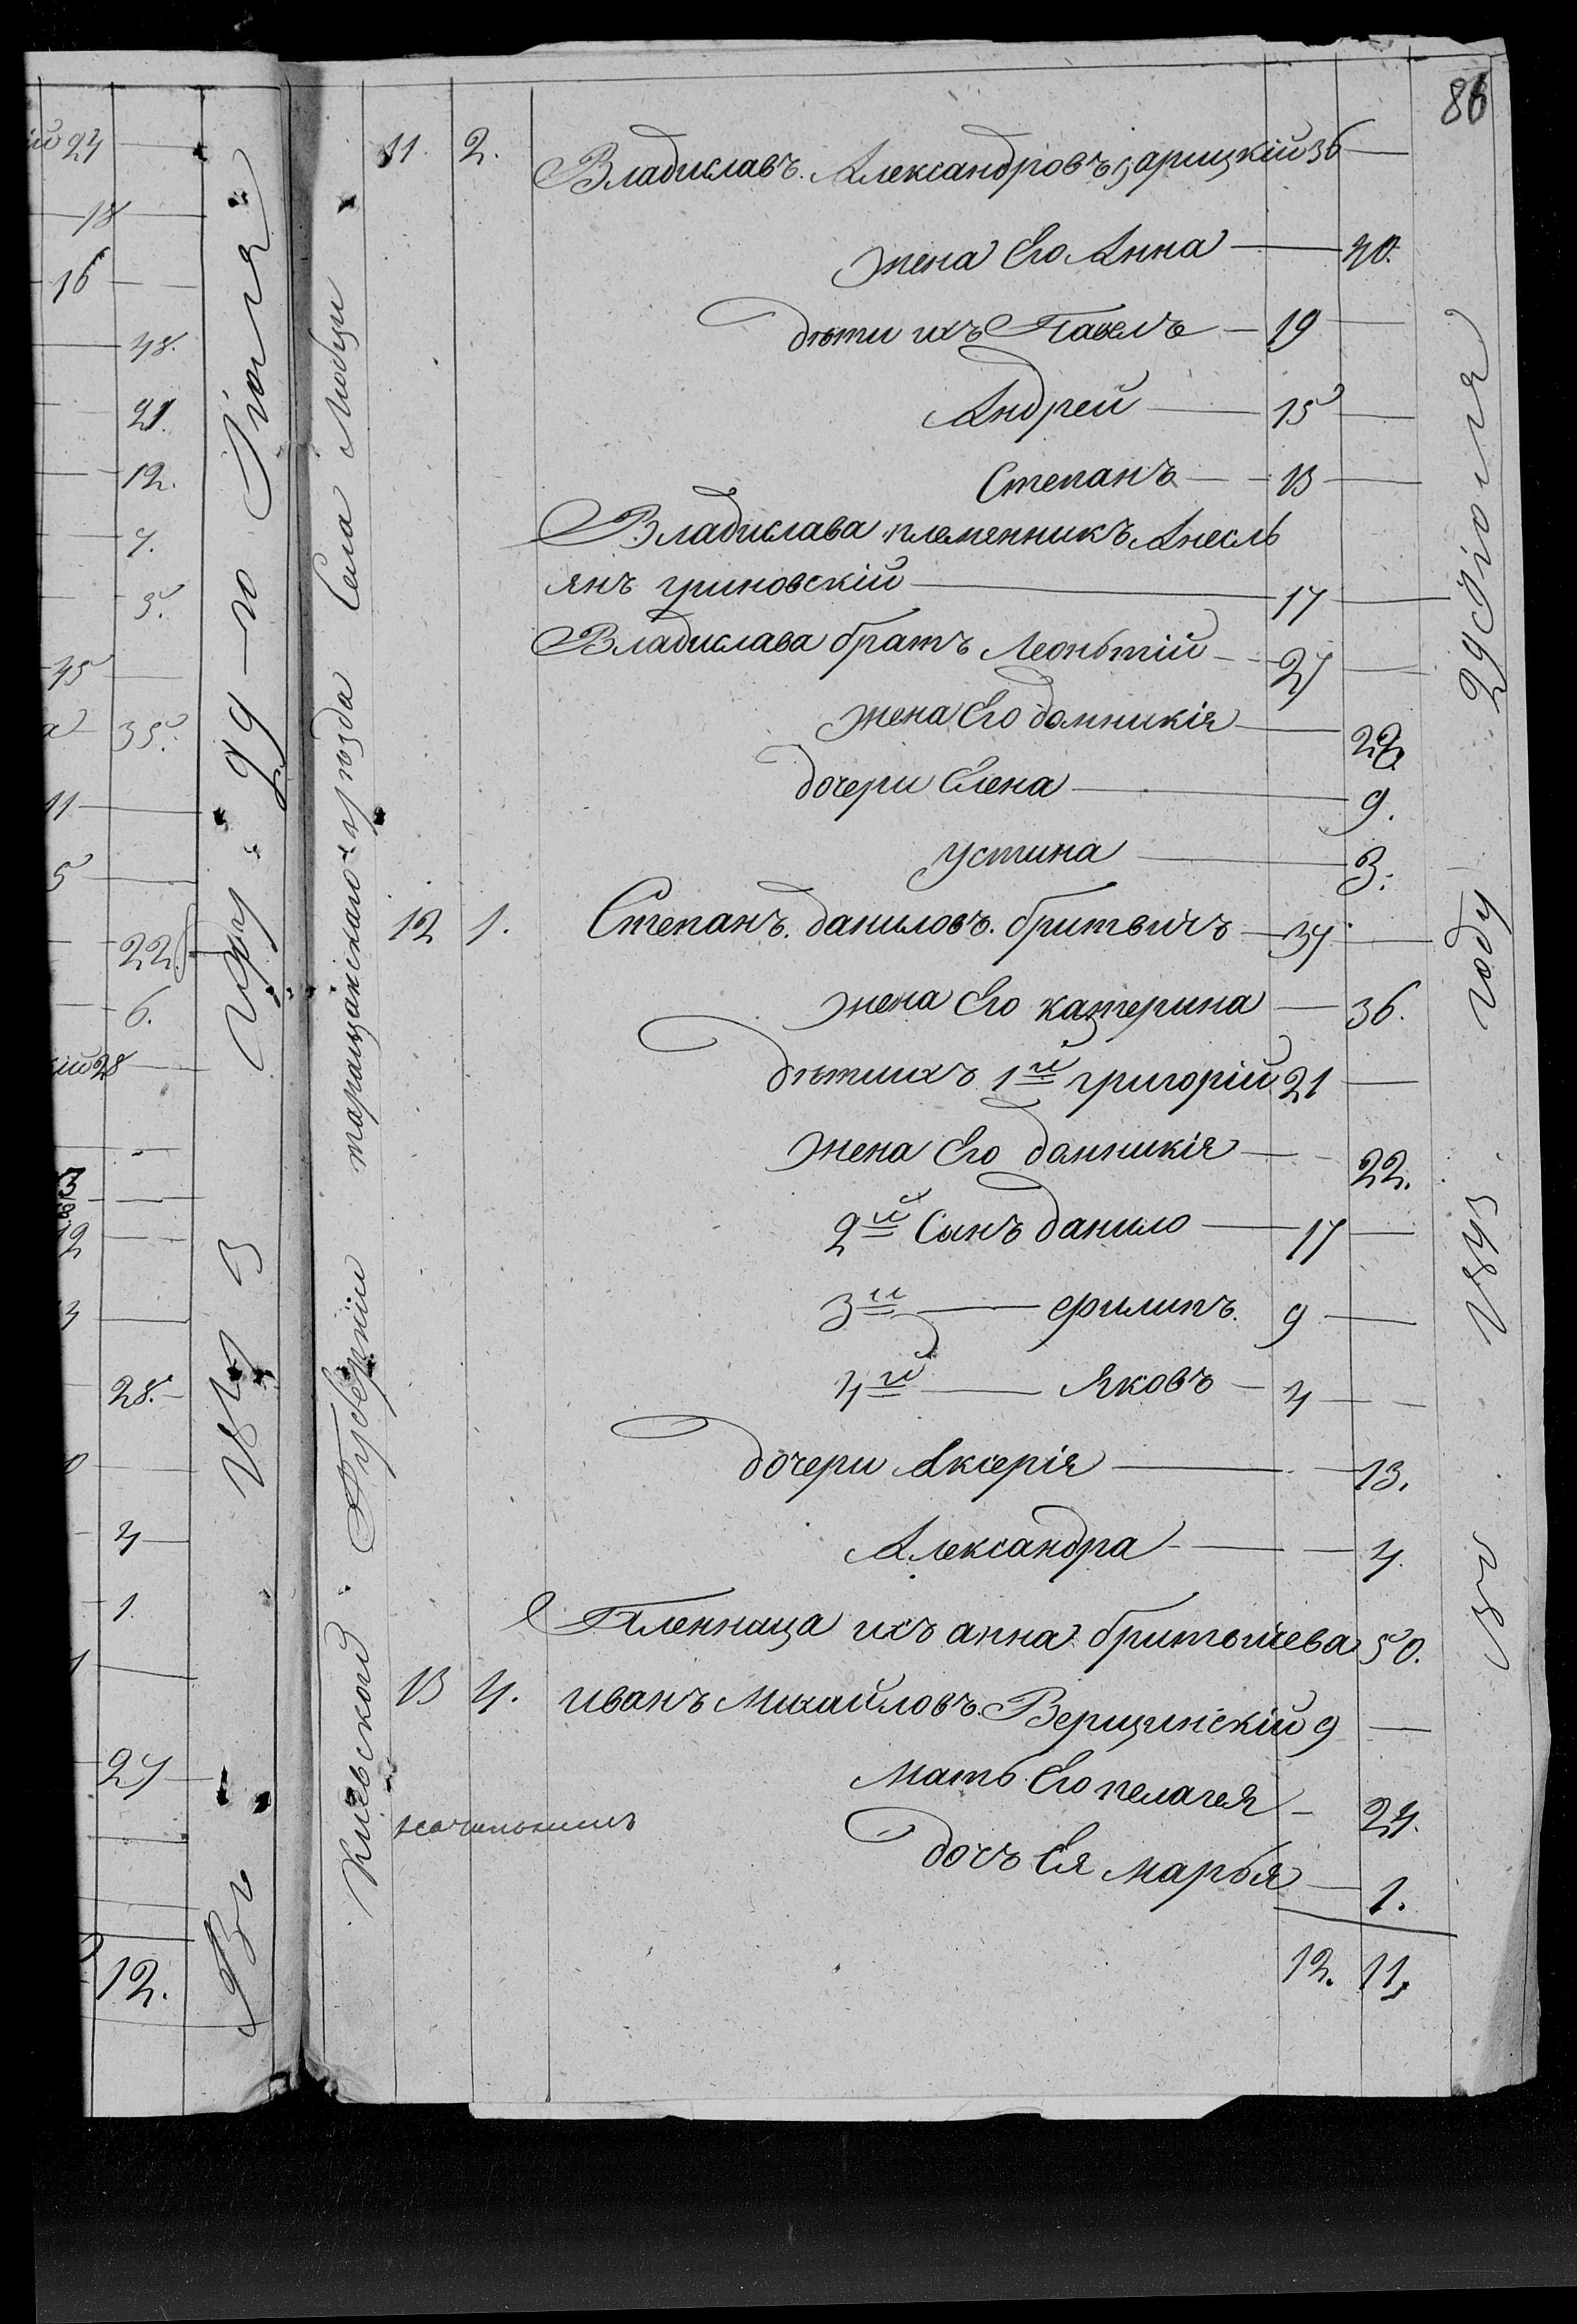 86
11. 2. Владиславъ. Александровъ Зарицкій 36 —
жена Его Анна — 40.
дѣти ихъ Павелъ — 19 —
Андрей — 15 —
Степанъ — 13 —
Владислава племянникъ Анесль
янъ гриновскій — 17 —
Владислава братъ Леоньтій — 27 —
жена Его домникія — 29.
дочери Елена — 9.
устина — 3.
12 1. Степанъ. даниловъ. бритвичъ — 37 —
жена Его катерина — 36.
дѣти ихъ 1й григорій 21 —
жена Его домникія — 22.
2й Сынъ данило — 17 —
3й — филипъ. 9 —
4й — Яковъ — 4 —
дочери Аксерія — 13.
Александра — 4.
Пленница ихъ анна бритвичева 50.
13 4. иванъ Михайловъ. Вершинскій 9 —
мать Его пелагея — 24.
дочь Ея марья — 1.
12. 11.
Киевской Губерніи таращанского уезда Села
Въ 1843 году 29 Июля
Въ 1843 году 29-го Июля
24
18
16
48.
21.
12.
7.
3.
45
35.
11
5
22.
6.
28
28.
4
1.
27
12.